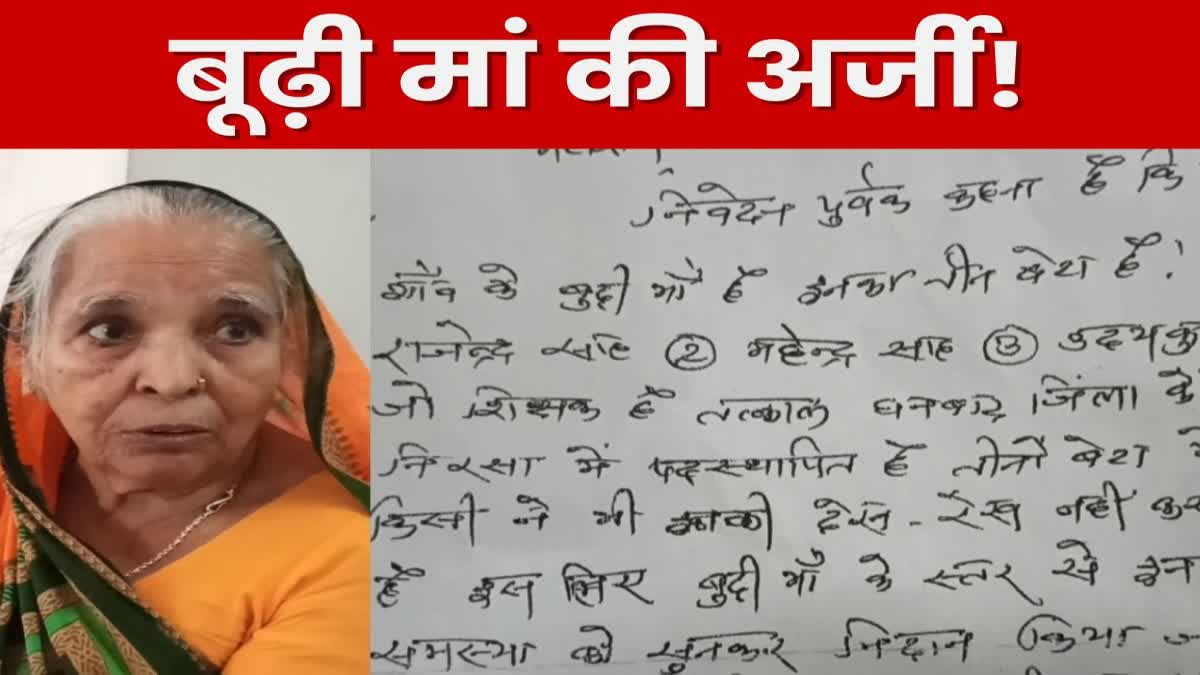 बूढ़ी मां की अर्जी!
निवेदन पुर्वक कहना है कि
गाँव के बुढ़ी माँ है इनका तीन बेटा है!
राजेन्द्र साह ② महेन्द्र साह ③ उदय कु
जो शिक्षक है तत्काल धनबाद जिंला के
निरसा में पदस्थापित है तीनों बेटा
किसी ने भी देख-रेख नहीं
है इस लिए बुढ़ी माँ के स्तर से इन
समस्या को सुनकर निदान किया